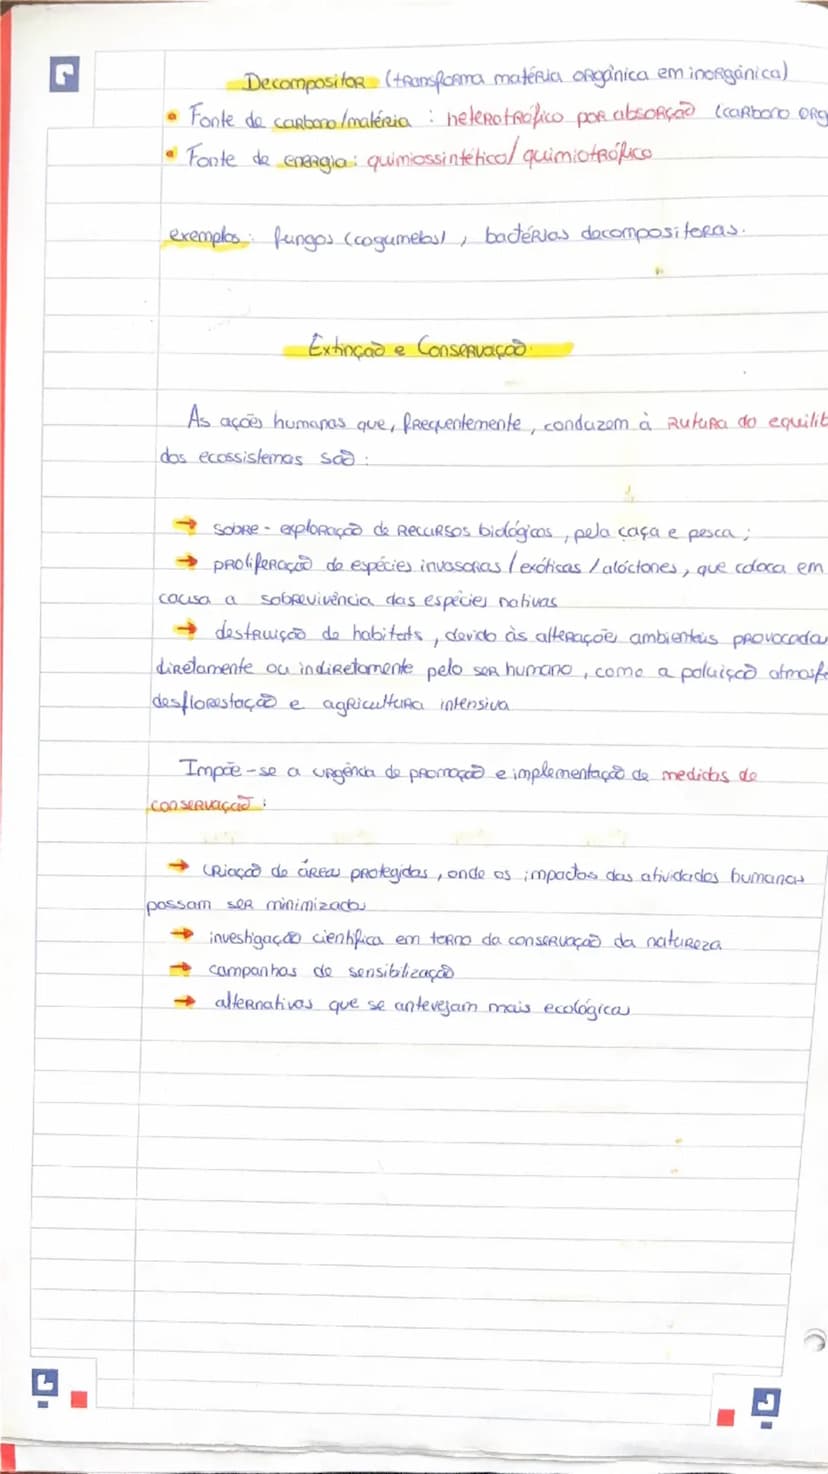 Decompositor (transforma matéria orgânica em inorgânica)
• Fonte de carbono/matéria : heterotrófico por absorção (carbono org
• Fonte de energia: quimiossintético/quimiotrófico
exemplos: fungos (cogumelos), bactérias decompositoras.
Extinção e Conservação.
As ações humanas que, frequentemente, conduzem à rutura do equilíb
dos ecossistemas são:
→ sobre-exploração de recursos biológicos, pela caça e pesca;
→ proliferação de espécies invasoras/exóticas/alóctones, que coloca em
causa a sobrevivência das espécies nativas
→ destruição de habitats, devido às alterações ambientais provocada
diretamente ou indiretamente pelo ser humano, como a poluição atmosfe
desflorestação e agricultura intensiva
Impõe-se a urgência de promoção e implementação de medidas de
conservação:
→ criação de áreas protegidas, onde os impactos das atividades humanas
possam ser minimizados
→ investigação científica em torno da conservação da natureza
→ campanhas de sensibilização
→ alternativas que se antevejam mais ecológicas